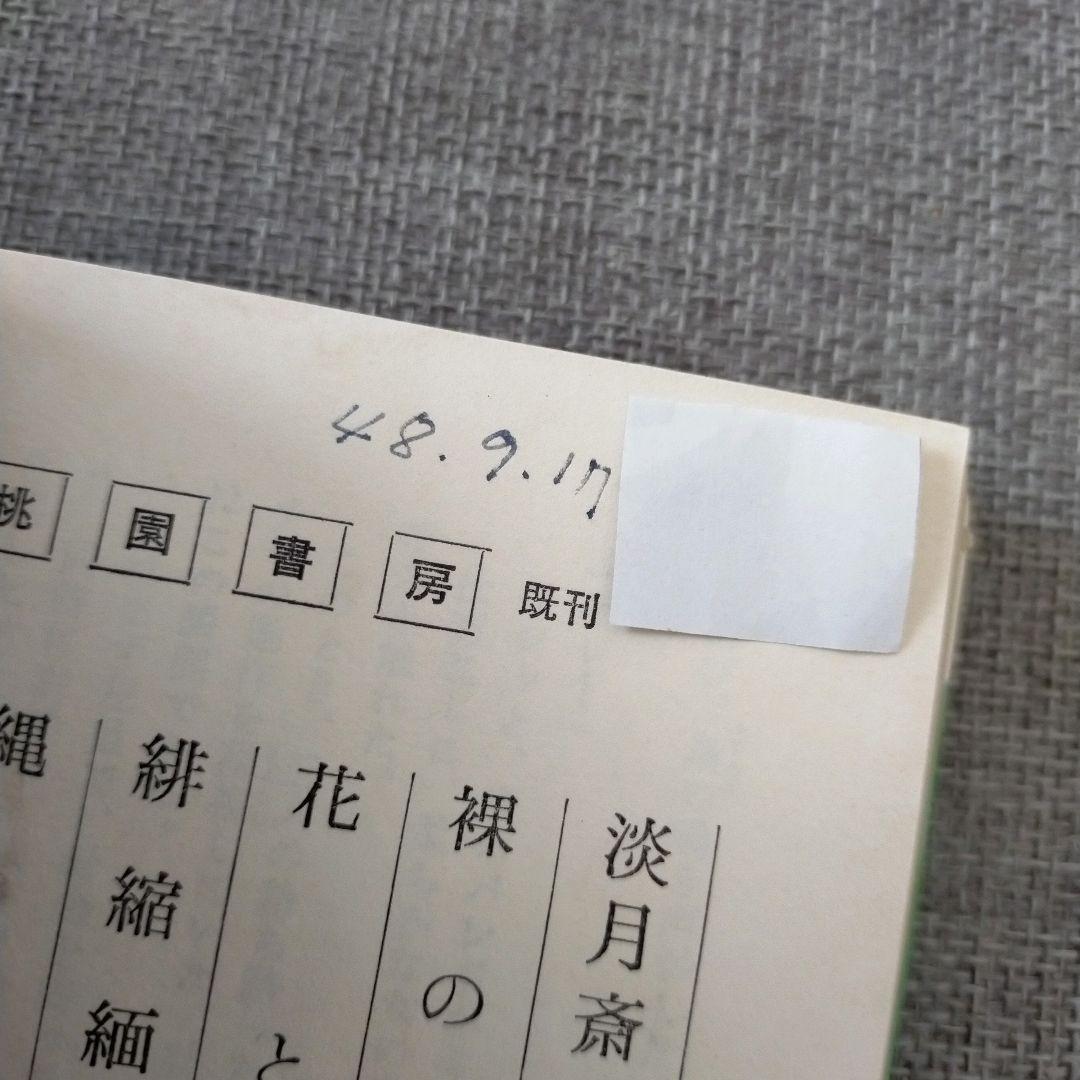 48.9.17
桃園書房 既刊
淡月斎
裸の
花と
緋縮緬
縄